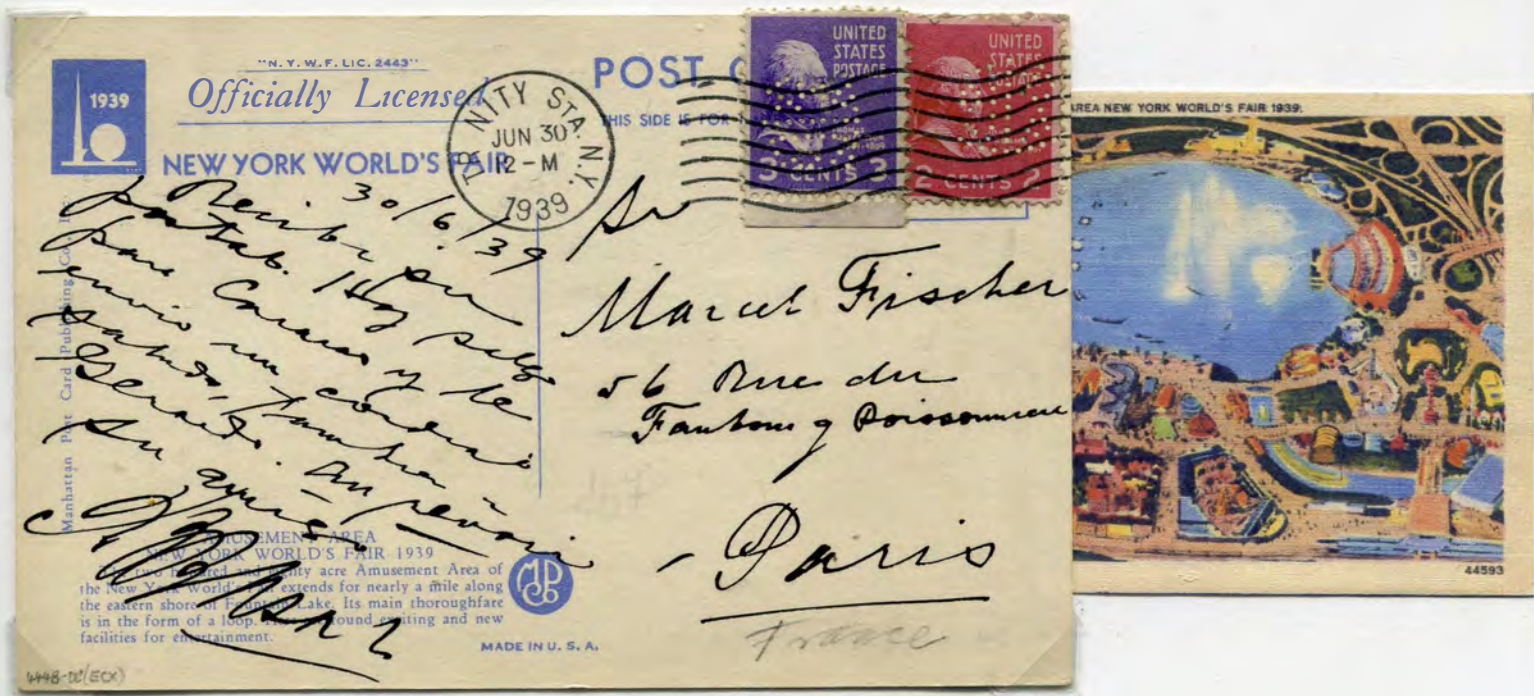 "N. Y. W. F. LIC. 2443"
Officially Licensed
1939
NEW YORK WORLD'S FAIR
POST C
THIS SIDE IS FOR
TRINITY STA. N.Y.
JUN 30
12-M
1939
UNITED
STATES
POSTAGE
3 CENTS 3
UNITED
STATES
POSTAGE
2 CENTS 2
30/6/39
Recibi su
postal. Hoy salgo
para Caracas y le
envio un cordial
saludo, tambien a
Gerardo. Au revoir
su
Sr
Marcel Fischer
56 Rue du
Faubourg Poissonniere
Paris
France
Manhattan Post Card Publishing Co. Inc.
AMUSEMENT AREA
NEW YORK WORLD'S FAIR 1939
two hundred and eighty acre Amusement Area of
the New York World's Fair extends for nearly a mile along
the eastern shore of Fountain Lake. Its main thoroughfare
is in the form of a loop. found exciting and new
facilities for entertainment.
MADE IN U. S. A.
4448-DL(ECX)
AREA NEW YORK WORLD'S FAIR 1939.
44593